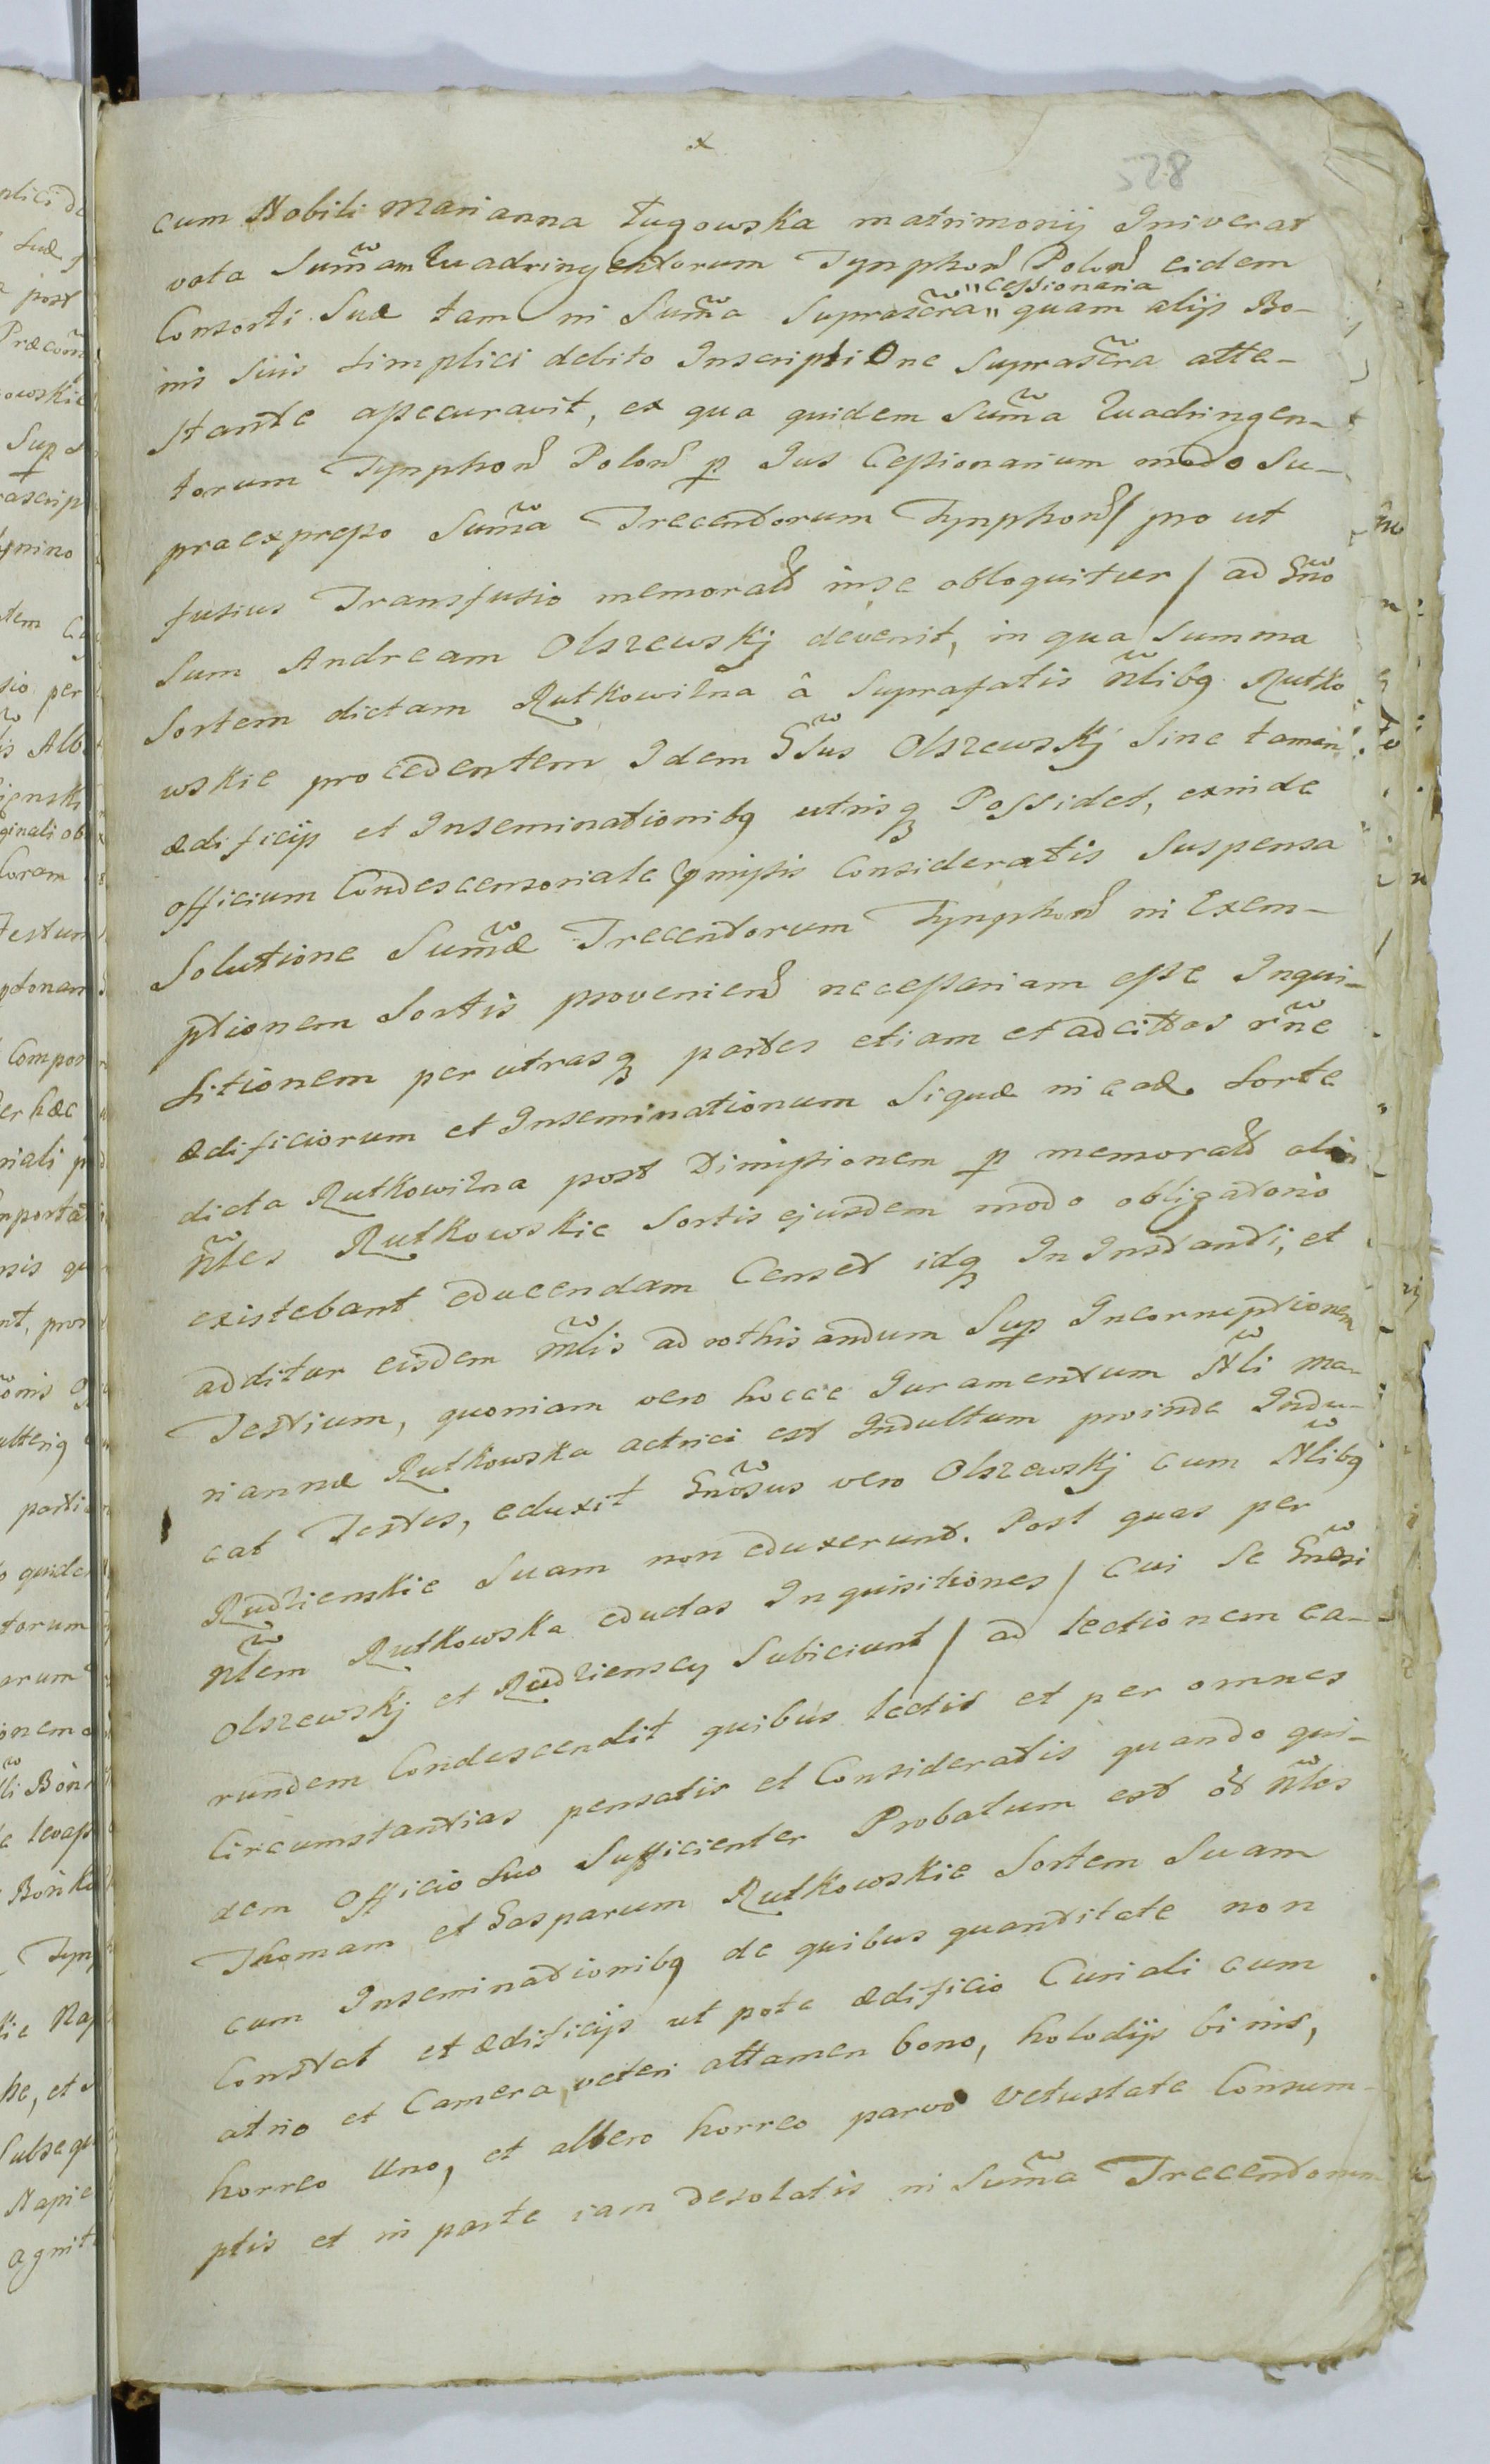 528
cum Nobili Marianna Ługowska matrimonij Iniverat
vota Sum̃am Quadringentorum Tynphon̄ Polon̄ eidem
Consorti Suæ tam in Sum̃a Suprascr̃a "cessionaria" quam alijs Bo-
nis suis simplici debito Inscriptione Suprascr̃a atte-
stante assecuravit, ex qua quidem Sum̃a Quadringen-
torum Tynphon̄ Polon̄ p Ius Cessionarium modo Su-
praexpresso Sum̃a Trecentorum Tynphon̄ / pro ut
fusius Transfusio memorat̄ in se obloquitur / ad Gño
Sum Andream Olszewskj devenit, in qua Summa
Sortem dictam Rutkowizna â Suprafatis ñlibq Rutko
wskie procedentem Idem Gsus Olszewskj Sine tamen
ædificijs et Inseminationibq utrisq Possidet, exinde
officium Condescensoriale pmissis Consideratis Suspensa
Solutione Sum̃æ Trecentorum Tynphon̄ in Exem-
ptionem Sortis provenien̄ necessariam esse Inqui-
sitionem per utrasq partes etiam et adcittos rñe
ædificiorum et Inseminationum Siquæ in ead. Sorte
dicta Rutkowizna post Dimissionem p memorat̄ olim
ñles Rutkowskie Sortis ejusdem modo obligatorio
existebant educendam Censet idq In Instanti, et
additur eisdem m̃lis ad rothisandum Sup Incorruptionem
Testium, quoniam vero hocce Iuramentum Ñli Ma-
riannæ Rutkowska actrici est Indultum proinde Indu-
cat Testes, eduxit Gnõsus vero Olszewskj cum Ñlibq
Rudzienskie Suam non eduxerunt. Post quas per
ñlem Rutkowska eductas Inquisitiones / Cui Se Gnẽsi
Olszewskj et Rudzienscy Subiciunt / ad lectionem ea-
rundem Condescendit quibus lectis et per omnes
Circumstantias pensatis et Consideratis quando qui-
dem Officio Suo Sufficienter Probatum est od ñles
Thomam et Gasparum Rutkowskie Sortem Suam
cum Inseminationibq de quibus quantitate non
Constat et ædificijs ut pote ædificio Curiali cum
atrio et Camera, veteri attamen bono, holodijs binis,
horreo Uno, et altero horreo parvo Vetustate Consum-
ptis et in parte iam desolatis in Sum̃a Trecentorum